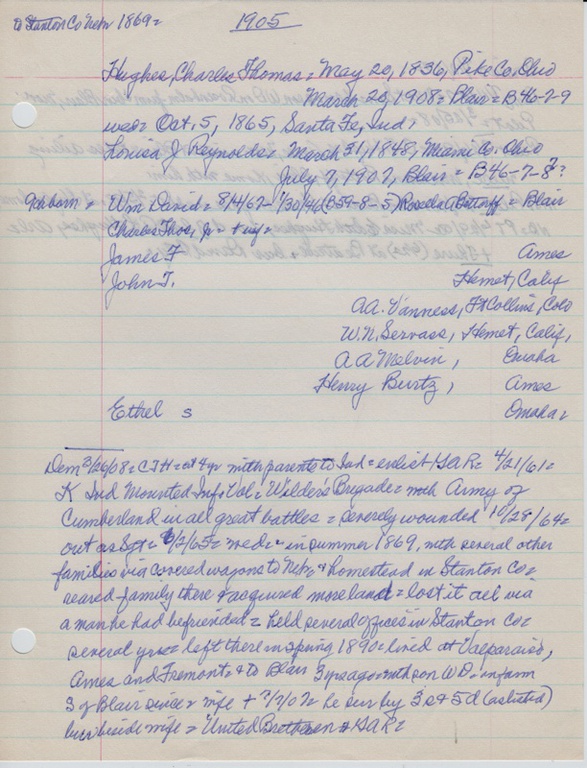 to Stanton Co Nebr 1869= 1905
Hughes, Charles Thomas = May 20, 1836, Pike Co, Ohio
March 20, 1908 = Blair = B46-7-9
wed = Oct. 5, 1865, Santa Fe, Ind,
Louisa J Reynolds = March 31, 1848, Miami Co. Ohio
July 7, 1907, Blair = B46-7-8?
9ch born = Wm David = 8/4/67 - 1/30/46 (B59-8-5) Rosella A = Blair
Charles Thos, Jr =
James F Ames
John T. Hemet, Calif
AA. Vanness, Ft Collins, Colo
W.N. Servass, Hemet, Calif,
AA Melvin, Omaha
Henry Burtz, Ames
Ethel s Omaha=
Dem 3/26/08 = CTH = at 4 yr with parents to Ind = enlist GAR = 4/21/61 =
K Ind Mounted Inf Vol = Wilder's Brigade = with Army of
Cumberland in all great battles = severely wounded 10/28/64 =
out as Sgt = 6/2/65 = wed = in summer 1869, with several other
families via covered wagons to Nebr & homestead in Stanton Co =
reared family there & acquired more land = lost it all via
a man he had befriended = held several offices in Stanton Co =
several yrs = left there in spring 1890 = lived at Valparaiso,
Ames and Fremont = & to Blair 3 yrs ago = with son WD = on farm
3 of Blair since = wife + 7/7/07 = he sur by 3s & 5d (as listed)
bur beside wife = United Brethren & GAR =